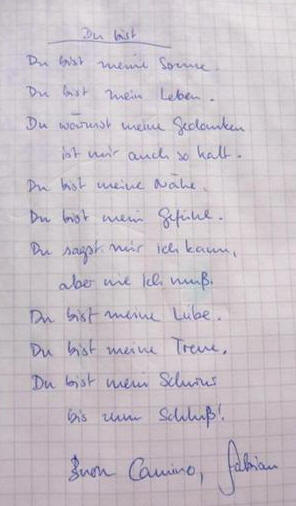 Du bist
Du bist meine Sonne.
Du bist mein Leben.
Du wärmst meine Gedanken
ist mir auch so kalt.
Du bist meine Nähe.
Du bist mein Gefühl.
Du sagst mir ich kann,
aber nie ich muß.
Du bist meine Liebe.
Du bist meine Treue.
Du bist mein Schluß
bis zum Schluß!
Buon Camino, Fabian